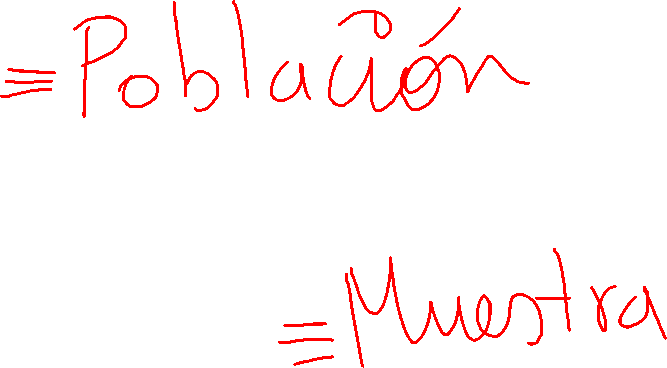 ≡ Población
≡ Muestra